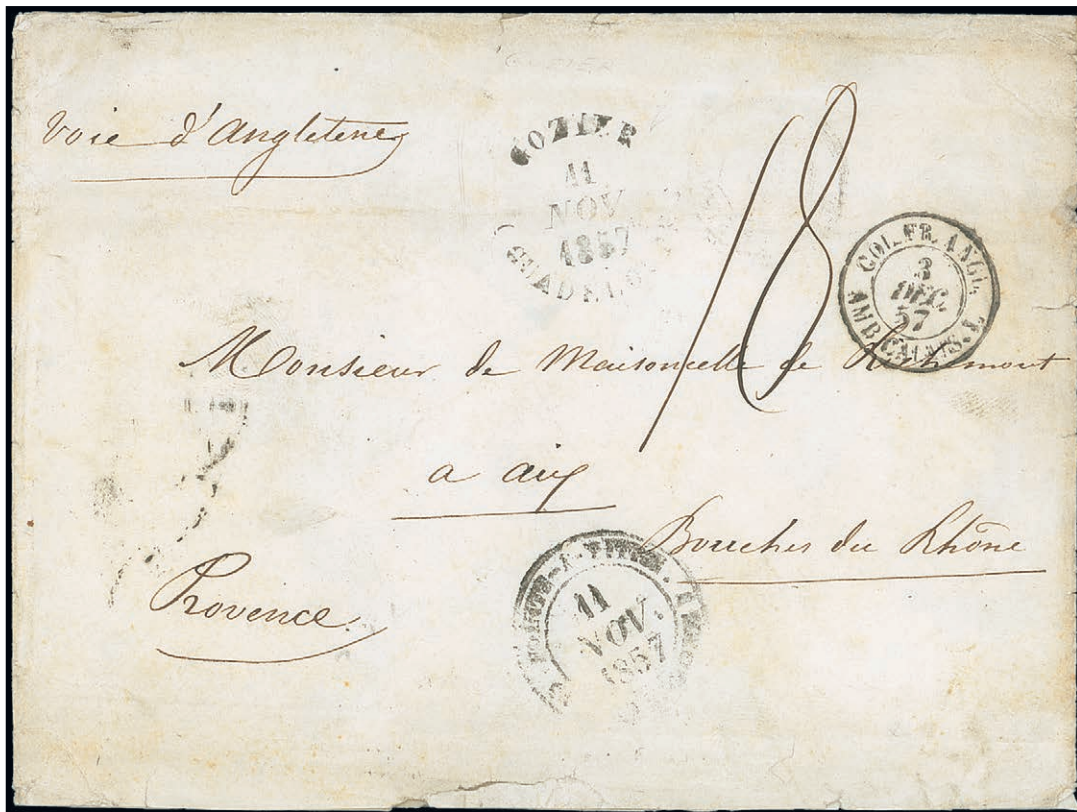 voie d'Angleterre
GOZIER
11
NOV
1857
GUADEL
18
COL. FR. ANGL.
3
DEC.
57
AMB. CALAIS. L
Monsieur de Maisoncelle de
a aix
Bouches du Rhône
Provence
POINTE-A-PITRE
11
NOV.
1857